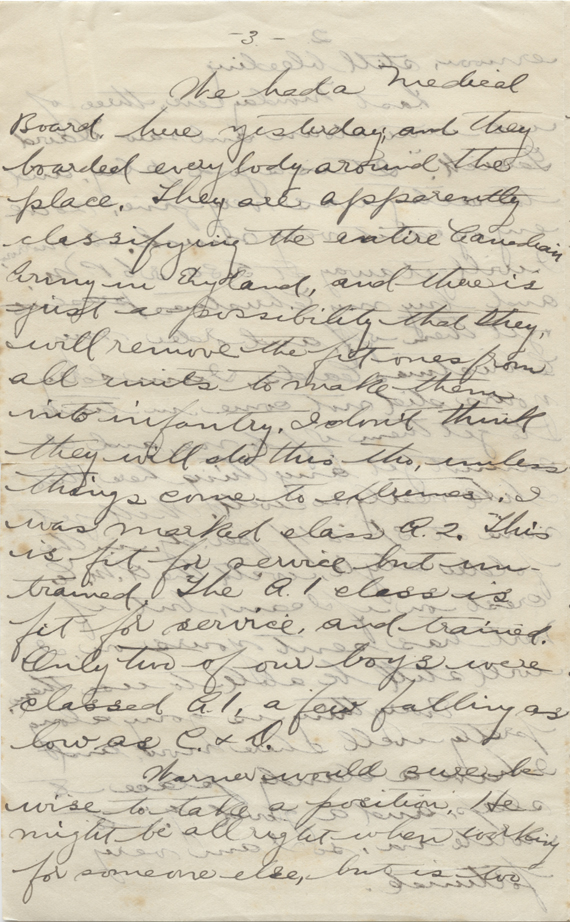 -3-
We had a Medical
Board here yesterday, and they
boarded everybody around the
place. They are apparently
classifying the entire Canadian
Army in England, and there is
just a possibility that they
will remove the fit ones from
all units to make them
into infantry. I don't think
they will do this tho, unless
things come to extremes. I
was marked class A.2. This
is fit for service but un-
trained. The A.1 class is
fit for service, and trained.
Only two of our boys were
classed A1, a few falling as
low as C. & D.
Warner would sure be
wise to take a position. He
might be all right when working
for someone else, but is too